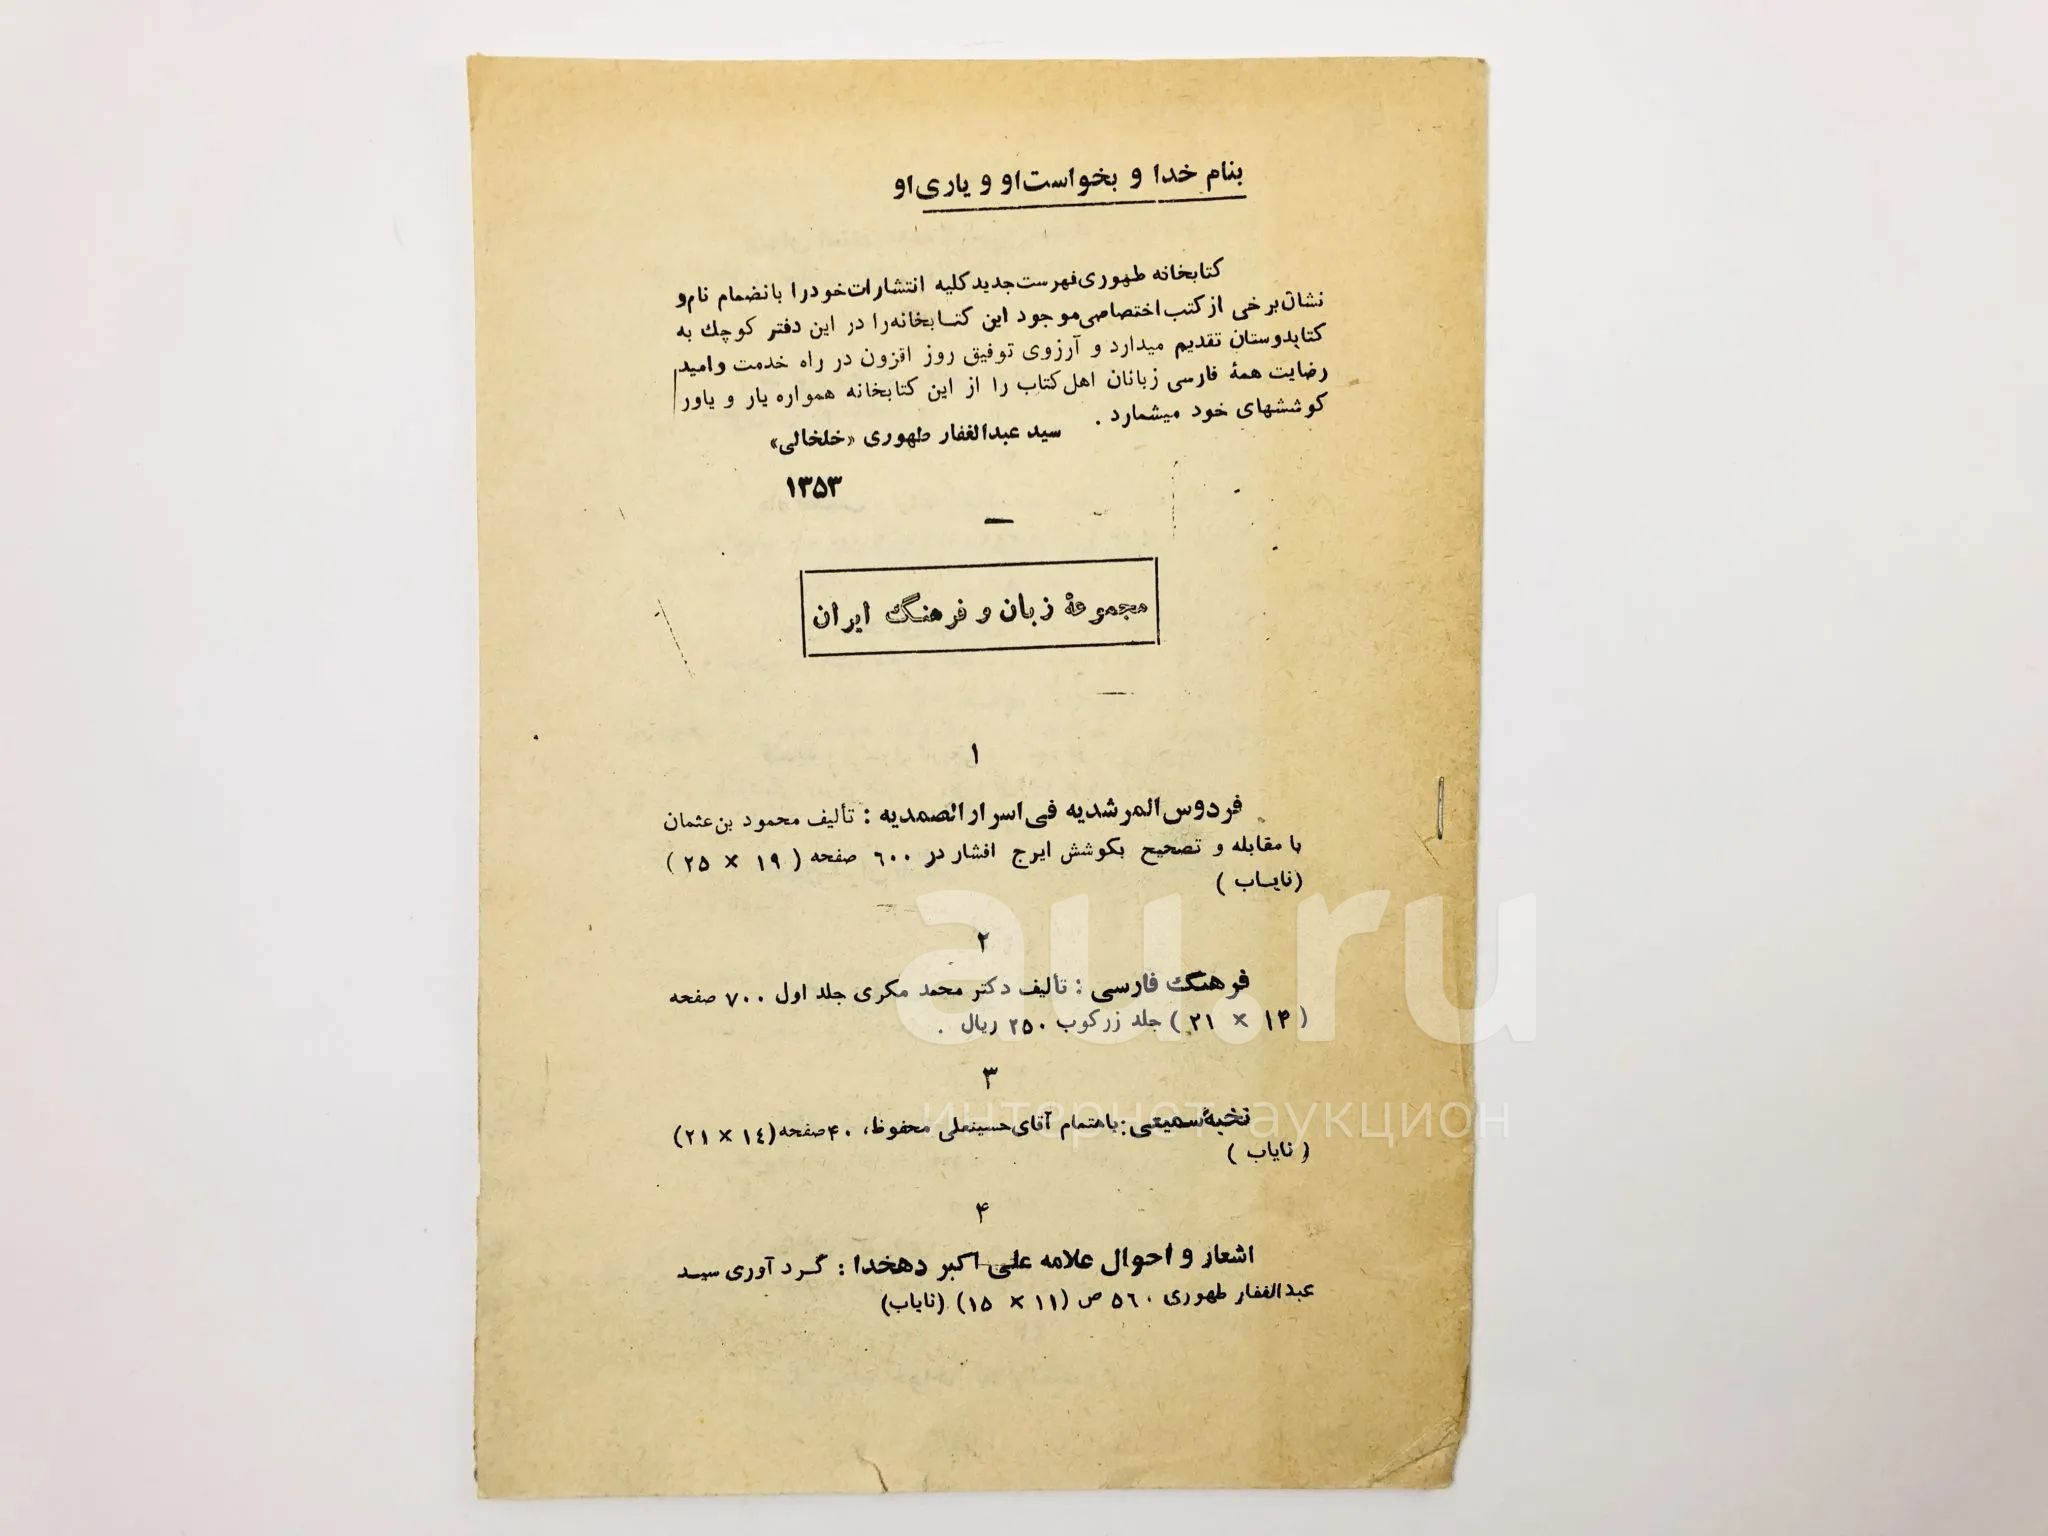 بنام خدا و بخواست او و یاری او
کتابخانه طهوری فهرست جدید کلیه انتشارات خود را بانضمام نام و
نشان برخی از کتب اختصاصی موجود این کتابخانه را در این دفتر کوچك به
کتابدوستان تقدیم میدارد و آرزوی توفیق روز افزون در راه خدمت و امید
رضایت همهٔ فارسی زبانان اهل کتاب را از این کتابخانه همواره یار و یاور
کوششهای خود میشمارد .
سید عبدالغفار طهوری «خلخالی»
۱۳۵۳
مجموعهٔ زبان و فرهنگ ایران
۱
فردوس المرشدیه فی اسرار الصمدیه : تألیف محمود بن عثمان
با مقابله و تصحیح بکوشش ایرج افشار در ۶۰۰ صفحه ( ۱۹ × ۲۵ )
(نایاب )
۲
فرهنگ فارسی : تألیف دکتر محمد مکری جلد اول ۷۰۰ صفحه
( ۱۴ × ۲۱ ) جلد زرکوب ۲۵۰ ریال .
۳
نخبهٔ سمیعی : باهتمام آقای حسینعلی محفوظ، ۴۰ صفحه (۱٤ × ۲۱)
( نایاب )
۴
اشعار و احوال علامه علی اکبر دهخدا : گرد آوری سید
عبدالغفار طهوری ۵۶۰ ص (۱۱ × ۱۵) (نایاب)
au.ru
интернет-аукцион